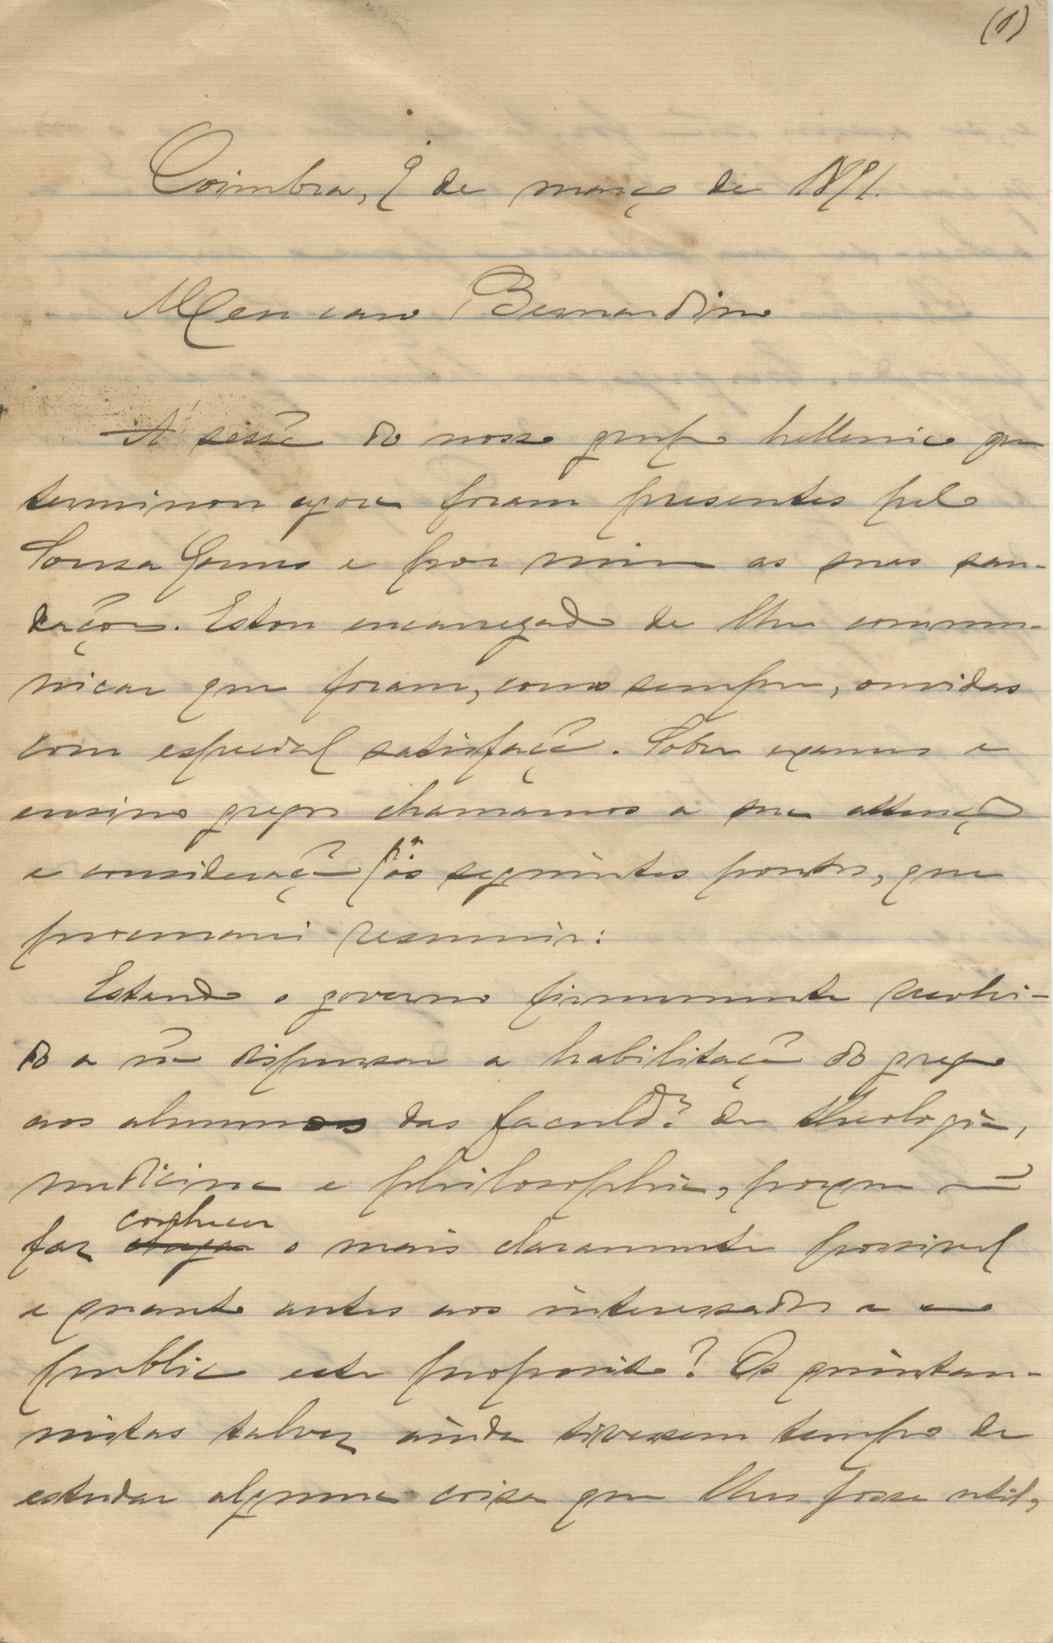 (1)
Coimbra, 9 de março de 1891.
Meu caro Bernardino
A sessão do nosso grupo hellenico que
terminou agora foram presentes pelo
Souza Gomes e por mim as suas sau-
dações. Estou encarregado de lhe commu-
nicar que foram, como sempre, ouvidas
com especial satisfação. Sobre exames e
ensino grego chamamos a sua attenção
e consideração pª os seguintes pontos, que
procurarei resumir:
Estando o governo firmemente resolvi-
do a não dispensar a habilitação do grego
aos alumnos das faculd.es de theologia,
medicina e philosophia, porque não
faz conhecer o mais claramente possivel
e quanto antes aos interessados e ao
publico este proposito? Os quintan-
nistas talvez ainda tivessem tempo de
estudar alguma coisa que lhes fosse util,